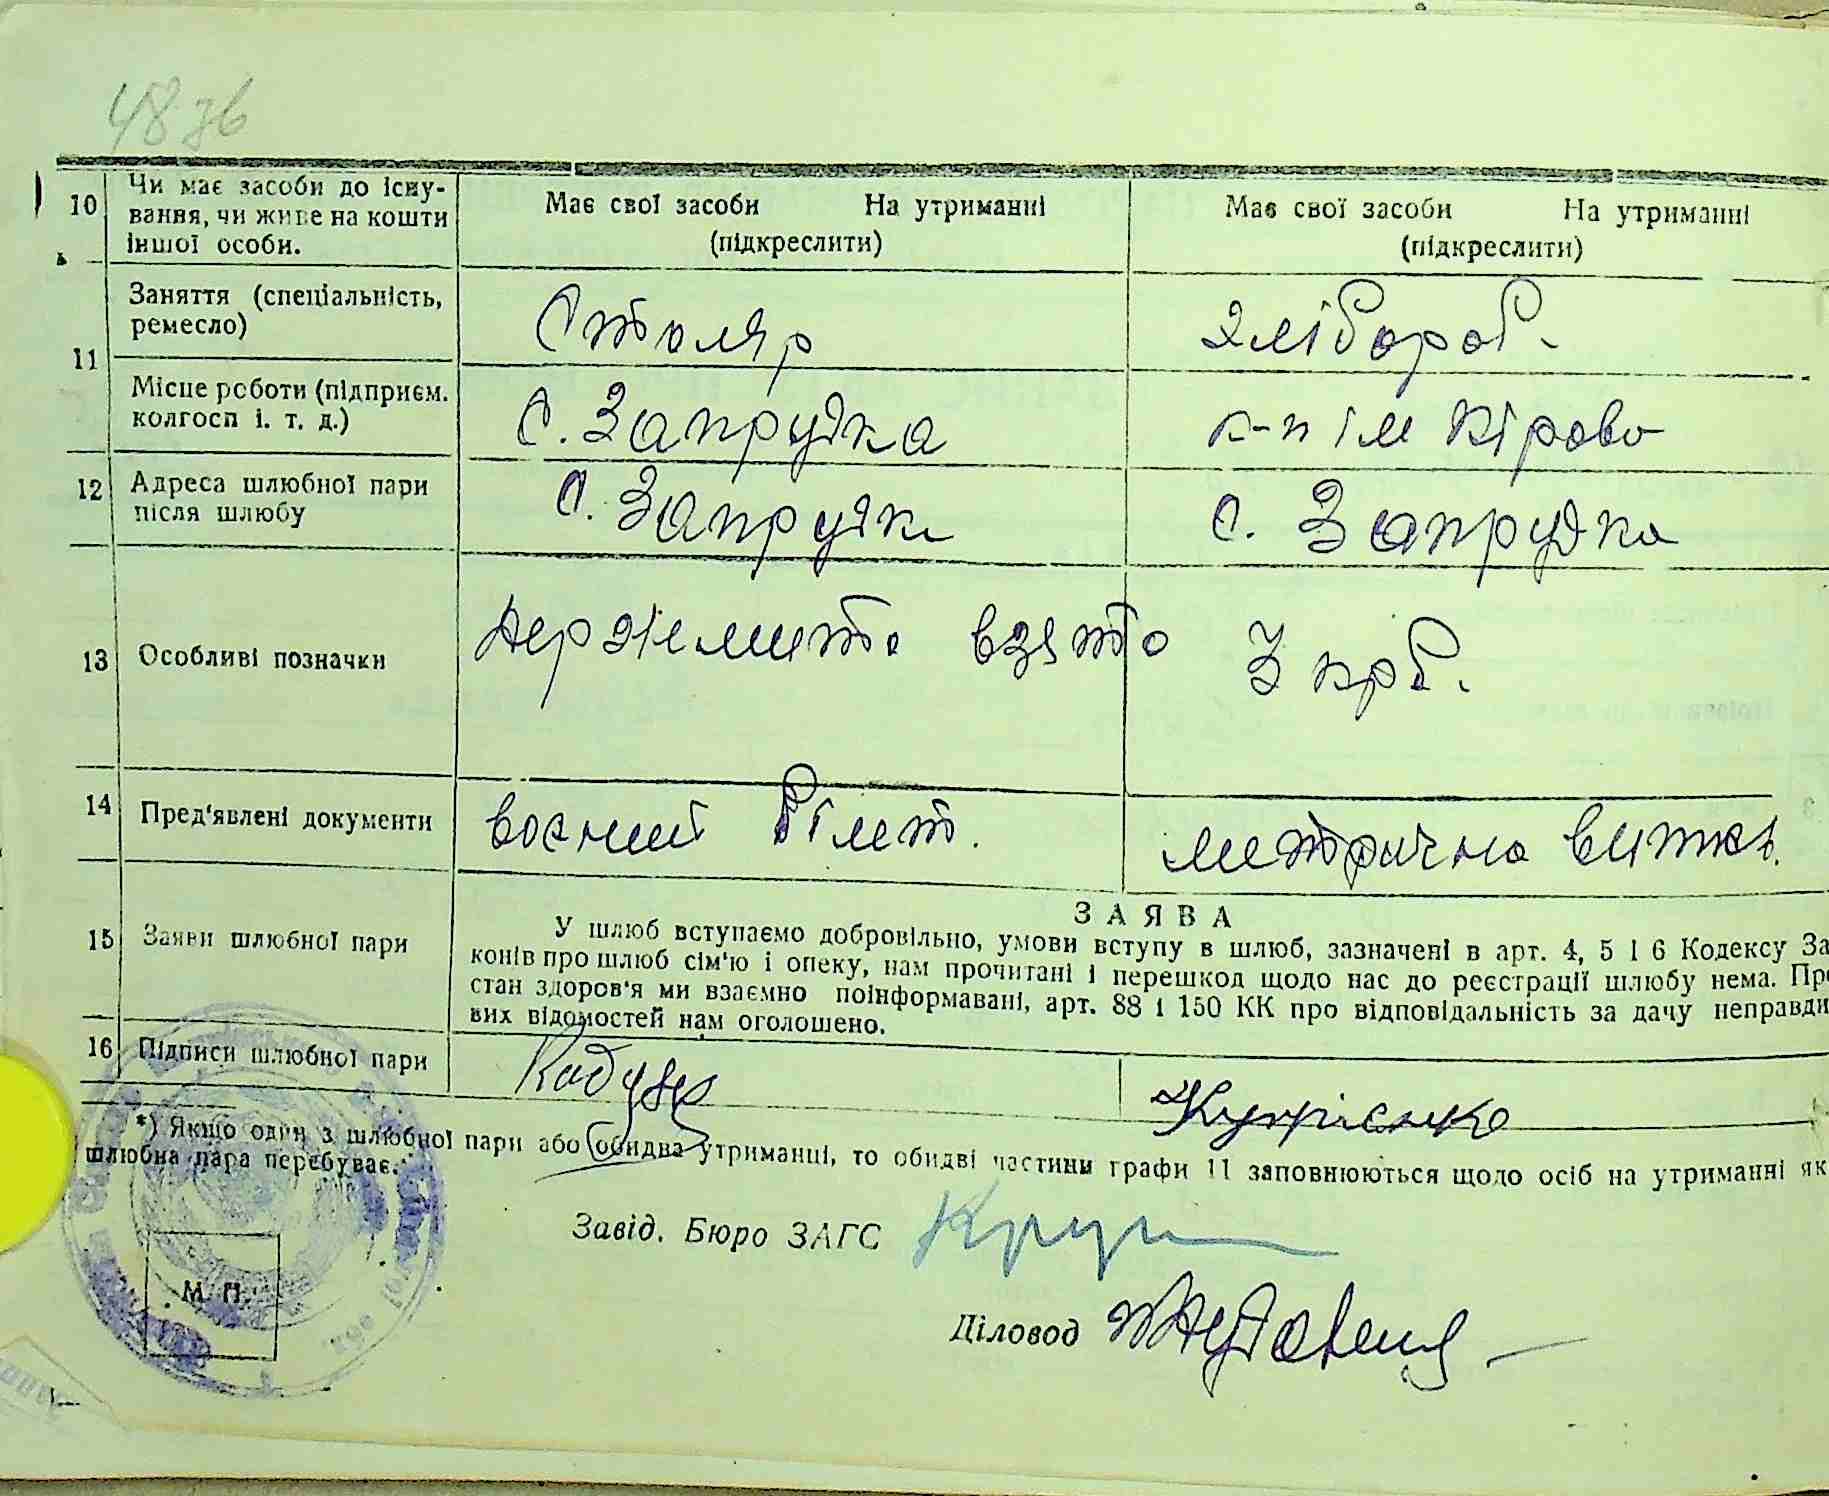 48 зв
10 Чи має засоби до існу-
вання, чи живе на кошти
іншої особи.
Має свої засоби На утриманні
(підкреслити)
Має свої засоби На утриманні
(підкреслити)
11 Заняття (спеціальність,
ремесло)
Столяр
хлібороб.
Місце роботи (підприєм.
колгосп і. т. д.)
с. Запрудка
к-п ім Кірова
12 Адреса шлюбної пари
після шлюбу
с. Запрудка
с. Запрудка
13 Особливі позначки
Держмито взято 3 крб.
14 Пред'явлені документи
воєний білет.
метрична витяг.
15 Заяви шлюбної пари
ЗАЯВА
У шлюб вступаємо добровільно, умови вступу в шлюб, зазначені в арт. 4, 5 і 6 Кодексу За
конів про шлюб сім'ю і опеку, нам прочитані і перешкод щодо нас до реєстрації шлюбу нема. Пр
стан здоров'я ми взаємно поінформавані, арт. 88 і 150 КК про відповідальність за дачу неправди
вих відомостей нам оголошено.
16 Підписи шлюбної пари
Купрієнко
*) Якщо один з шлюбної пари або обидва утриманні, то обидві частини графи 11 заповнюються щодо осіб на утриманні як
шлюбна пара перебуває.
Завід. Бюро ЗАГС
М. П.
Діловод